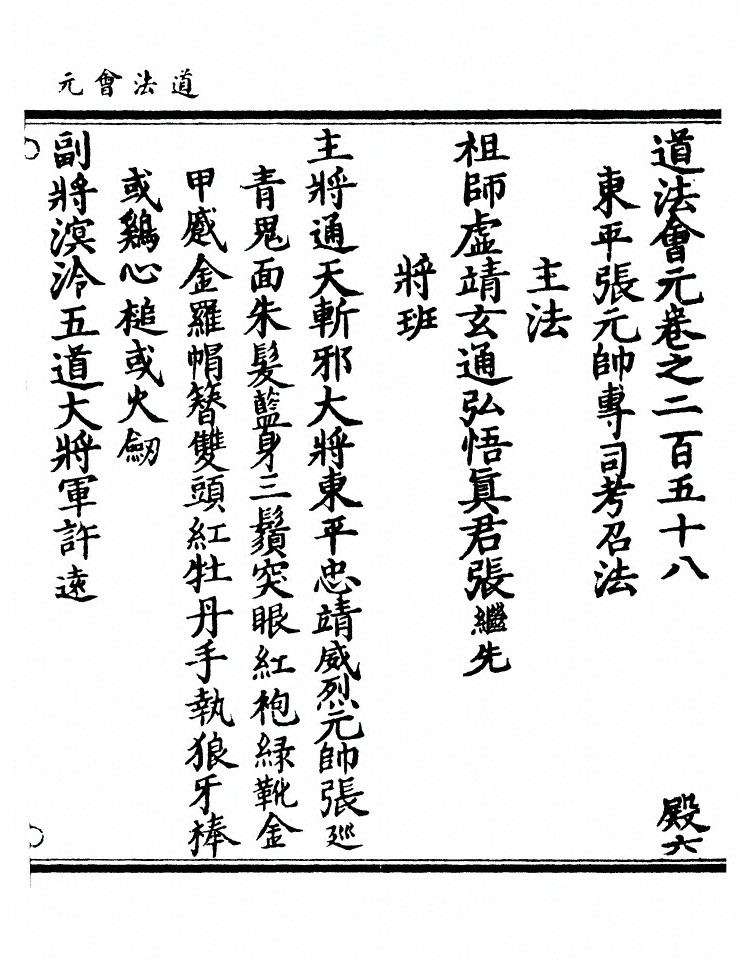 道法會元
道法會元卷之二百五十八
殿六
東平張元帥專司考召法
主法
祖師虛靖玄通弘悟眞君張繼先
將班
主將通天斬邪大將東平忠靖威烈元帥張巡
青鬼面朱髮藍身三鬚突眼紅袍綠靴金
甲蹙金羅帽簪雙頭紅牡丹手執狼牙棒
或鷄心槌或火劒
副將溟泠五道大將軍許遠